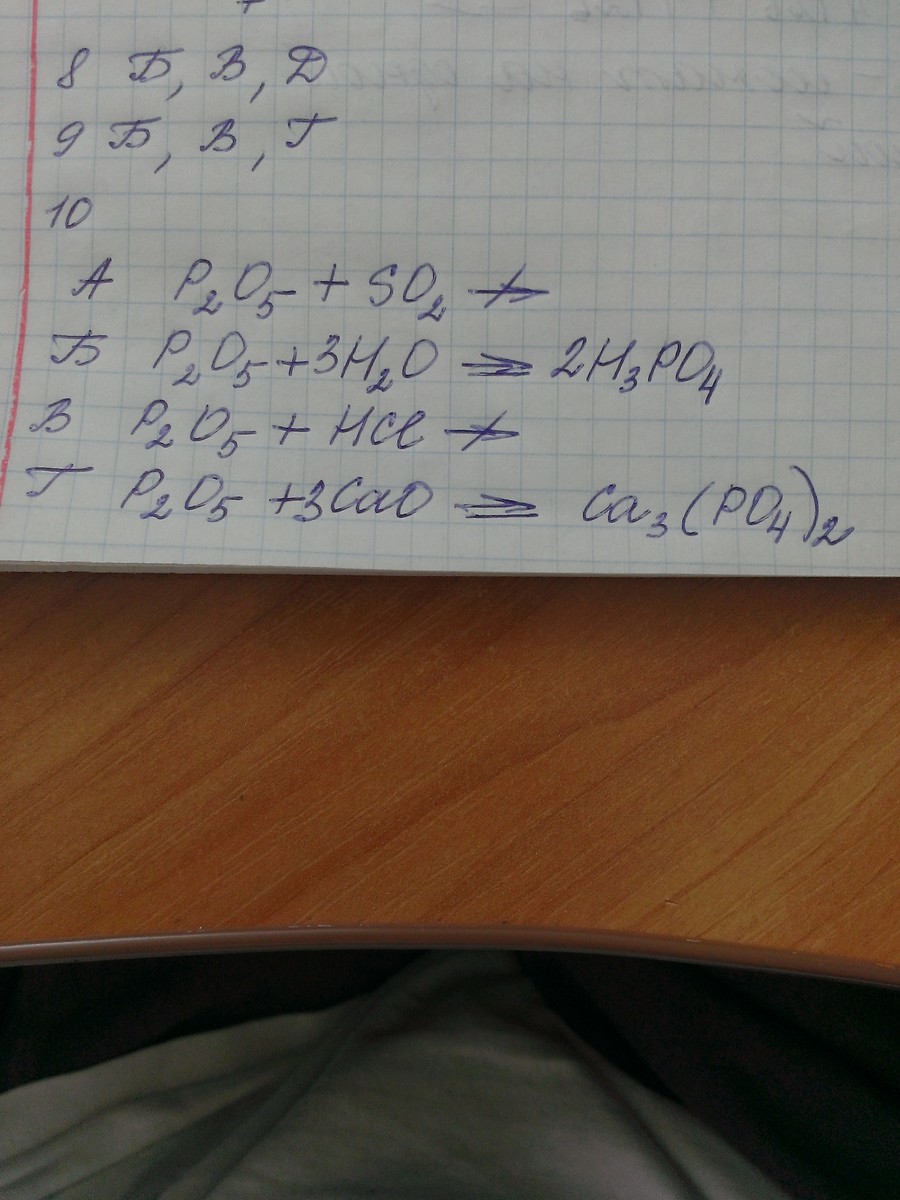 8 Б, В, Д
9 Б, В, Г
10
А P₂O₅ + SO₂ ↛
Б P₂O₅ + 3H₂O ⇒ 2H₃PO₄
В P₂O₅ + HCl ↛
Г P₂O₅ + 3CaO ⇒ Ca₃(PO₄)₂